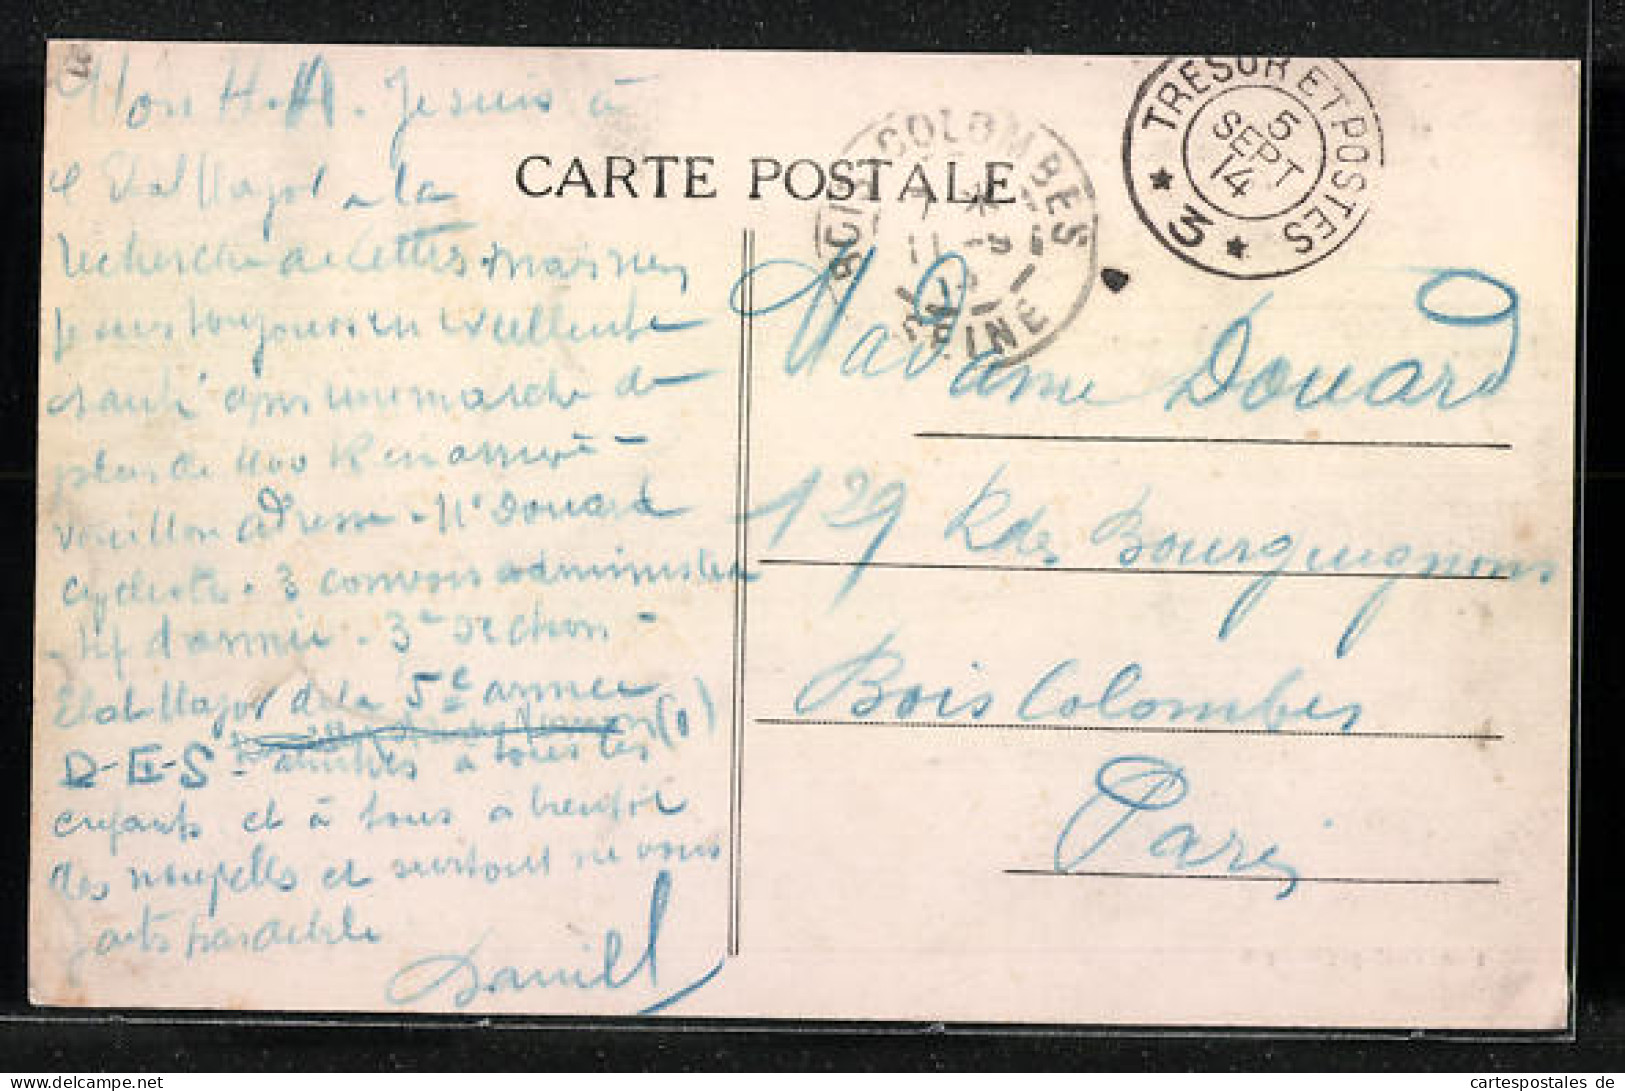 Mon H.A. Je suis à
l'Etat Major à la
recherche de lettres
Je suis toujours en excellente
santé après une marche de
plus de 400 K en arrière -
adresse - Mr Douard
cycliste - 3 convois administra
-tif d'armée - 3e section -
Etat Major de la 5e armée
D-E-S - à tous les (8)
enfants et à tous à bientôt
des nouvelles et surtout ne vous
faites pas de bile
Daniel
CARTE POSTALE
COLOMBES
SEINE
TRESOR ET POSTES
5
SEPT
14
* 3 *
Madame Douard
129 R des Bourguignons
Bois Colombes
Paris
cartespostales de